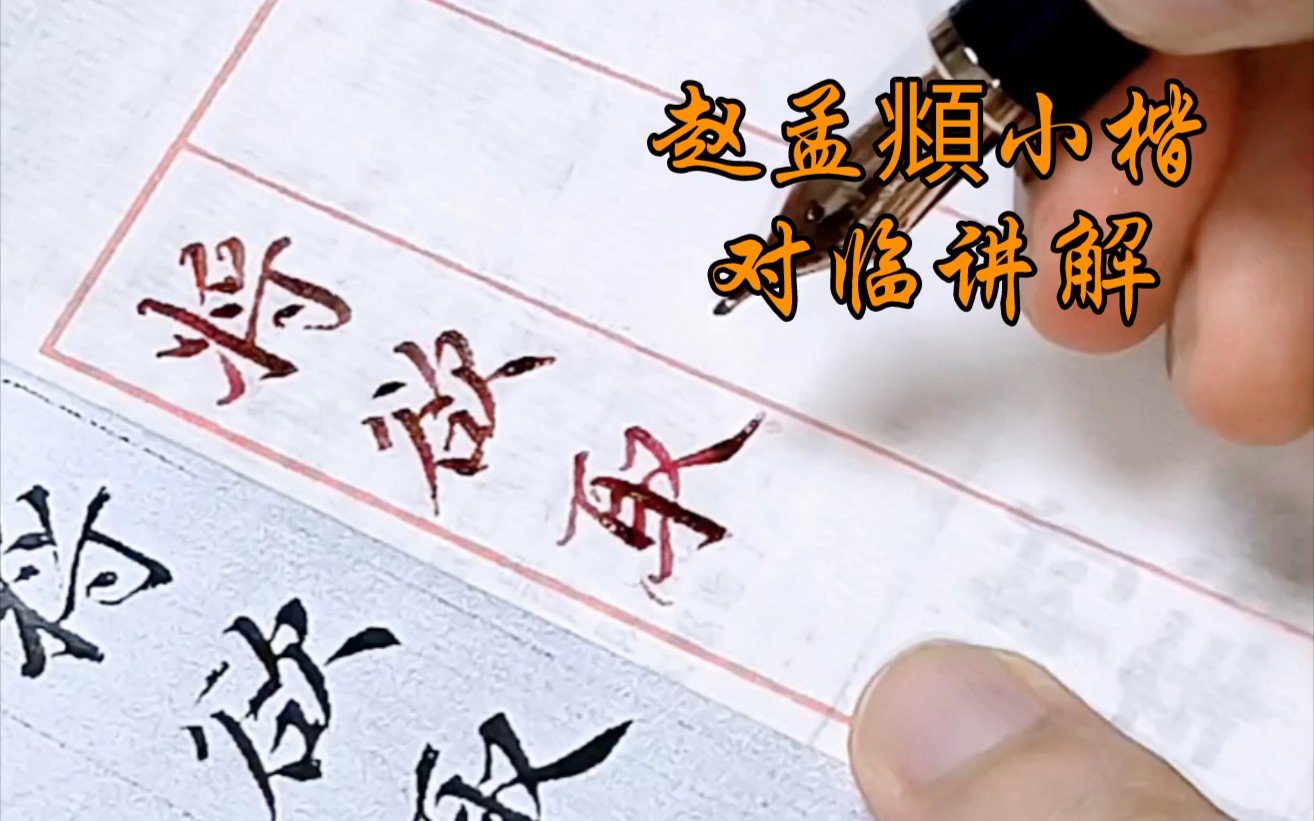 赵孟頫小楷
对临讲解
将欲取
将欲取